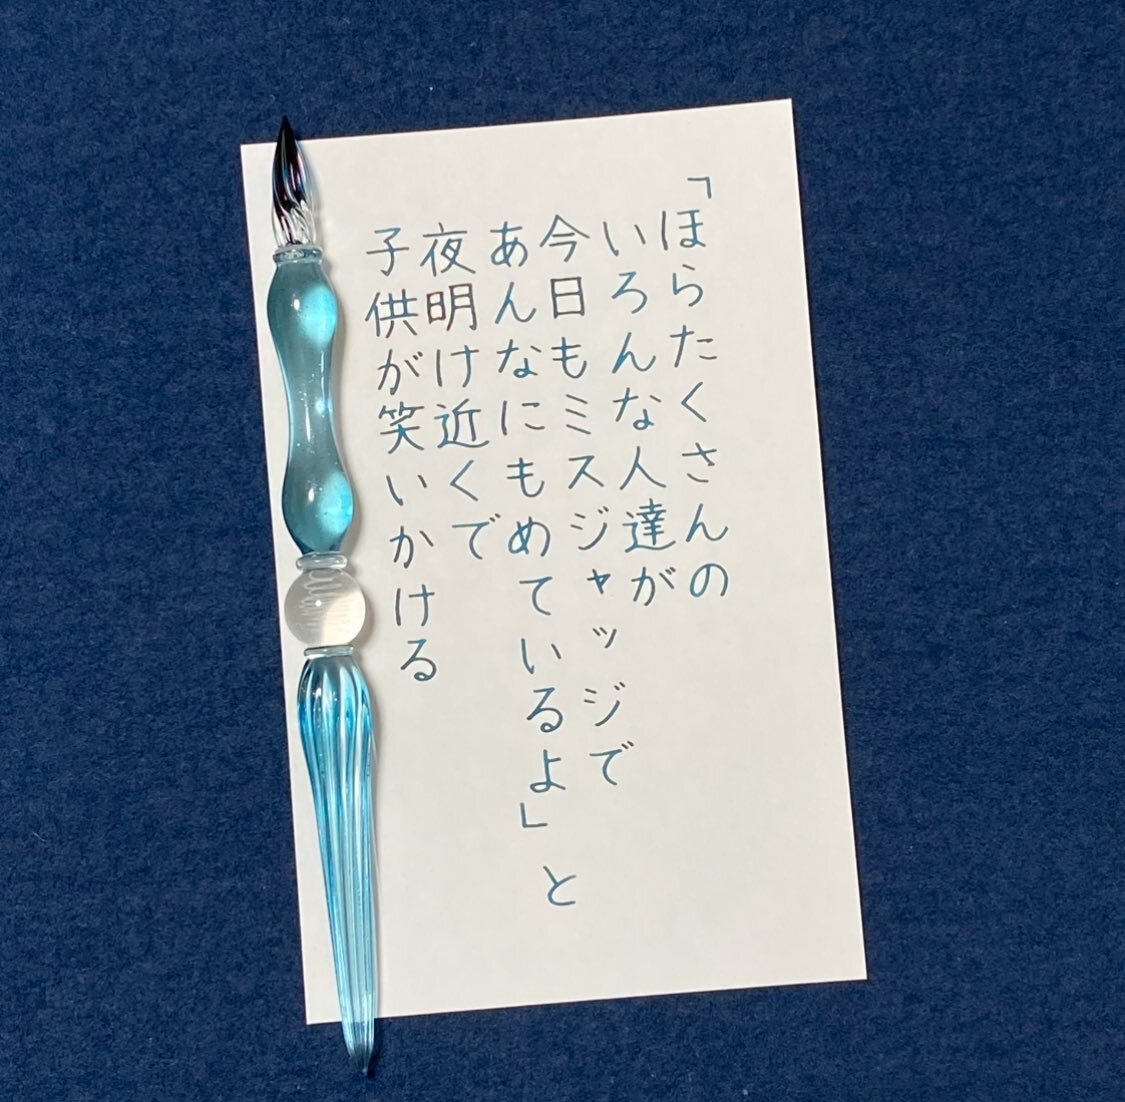 「ほらたくさんの
いろんな人達が
今日もミスジャッジで
あんなにもめているよ」と
夜明け近くで
子供が笑いかける